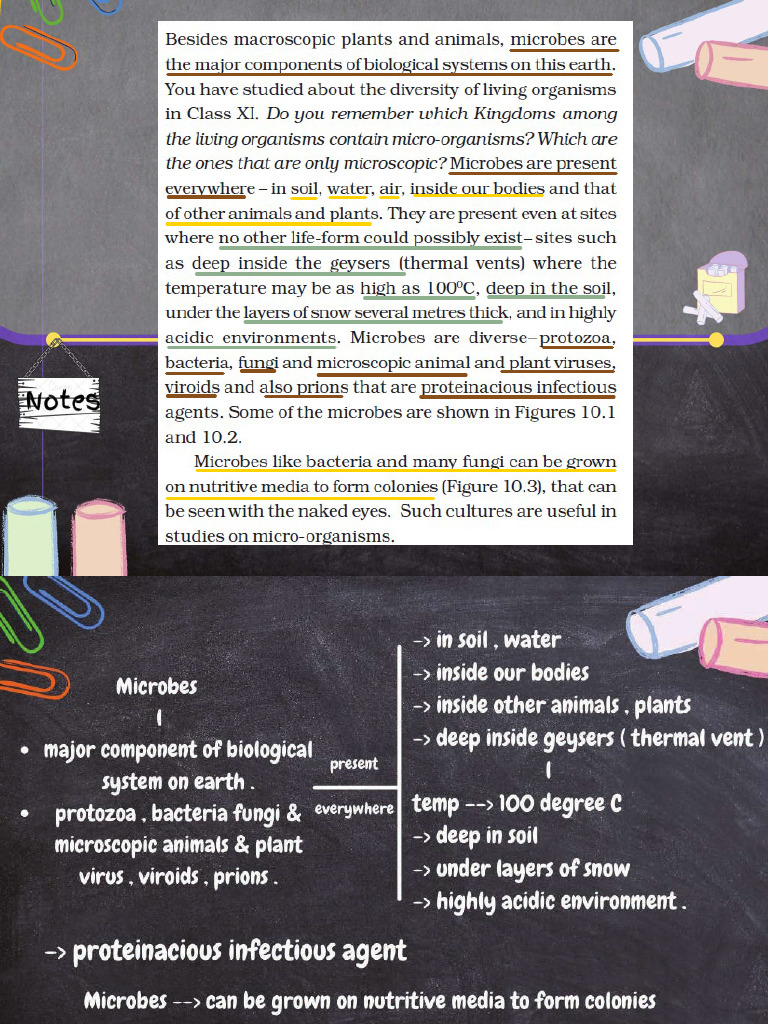 Besides macroscopic plants and animals, microbes are
the major components of biological systems on this earth.
You have studied about the diversity of living organisms
in Class XI. Do you remember which Kingdoms among
the living organisms contain micro-organisms? Which are
the ones that are only microscopic? Microbes are present
everywhere – in soil, water, air, inside our bodies and that
of other animals and plants. They are present even at sites
where no other life-form could possibly exist–sites such
as deep inside the geysers (thermal vents) where the
temperature may be as high as 100⁰C, deep in the soil,
under the layers of snow several metres thick, and in highly
acidic environments. Microbes are diverse–protozoa,
bacteria, fungi and microscopic animal and plant viruses,
viroids and also prions that are proteinacious infectious
agents. Some of the microbes are shown in Figures 10.1
and 10.2.
Microbes like bacteria and many fungi can be grown
on nutritive media to form colonies (Figure 10.3), that can
be seen with the naked eyes. Such cultures are useful in
studies on micro-organisms.
Notes
Microbes
• major component of biological
system on earth .
• protozoa , bacteria fungi &
microscopic animals & plant
virus , viroids , prions .
present
everywhere
-> in soil , water
-> inside our bodies
-> inside other animals , plants
-> deep inside geysers ( thermal vent )
temp --> 100 degree C
-> deep in soil
-> under layers of snow
-> highly acidic environment .
-> proteinacious infectious agent
Microbes --> can be grown on nutritive media to form colonies